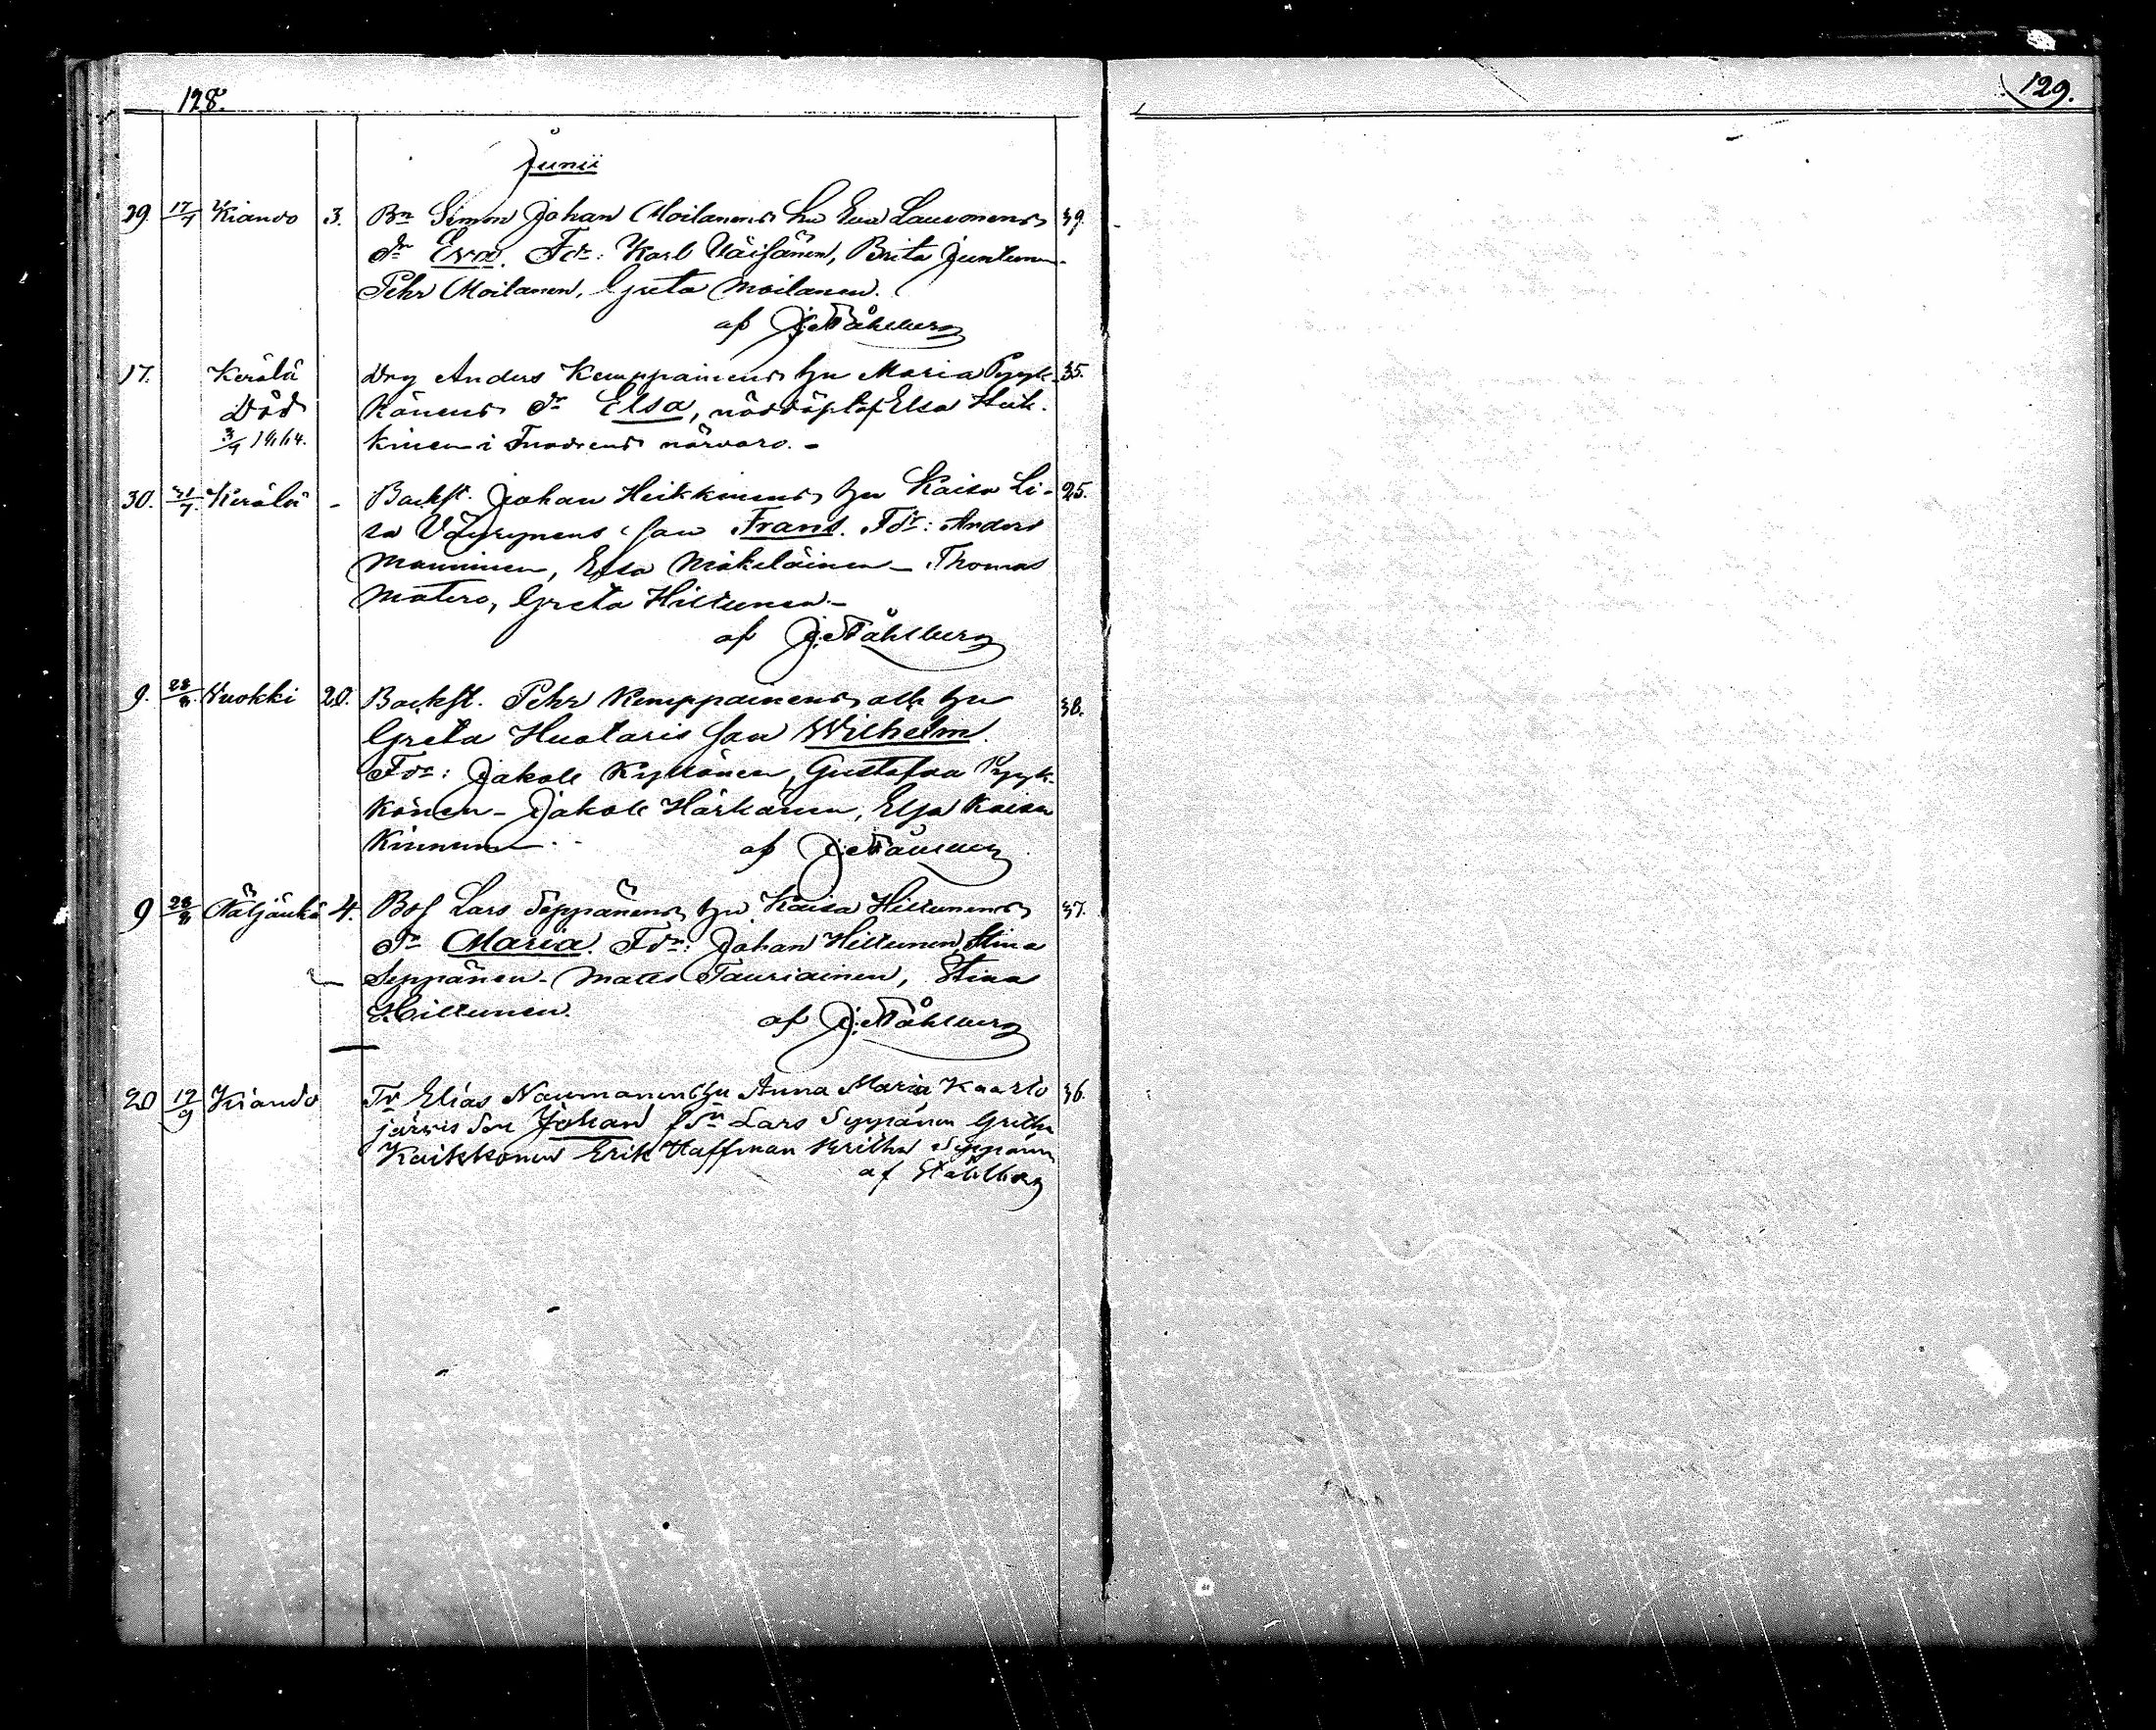 128.
129.
Junii
29. 17/7 Kiando 3. Bn Simon Johan Moilanens hu Eva Lauronens 39.
dr Eva. Fdr: Karl Väisänen, Brita Juntunen-
Pehr Moilanen, Greta Moilanen.
af J. Ståhlberg
17. Kerälä Drg Anders Kemppainens hu Maria Pyyk- 35.
Död könens dr Elsa, nöddöpt af Elsa Huk-
3/9 1864. kinen i Faddrens närvaro. -
30. 31/7. Kerälä - Backst. Johan Heikkinens hu Kaisa Li- 25.
sa Väyrynens son Frans. Fdr: Anders
Manninen, Elsa Mikeläinen - Thomas
Matero, Greta Hiltunen.-
af J. Ståhlberg
9. 28/8. Vuokki 20. Backst. Pehr Kemppainens och hu 38.
Greta Huotaris son Wilhelm.
Fdr: Jakob Kyllönen, Gustafva Pyyk-
könen - Jakob Härkönen, Elsa Kaisa
Kinnunen. - af J. Ståhlberg
9 28/8 Näljänkä 4. Bos Lars Seppänens hu Kaisa Hiltunens 37.
dr Maria. Fdr: Johan Hiltunen, Stina
Seppänen - Matts Tauriainen, Stina
Hiltunen. af J. Ståhlberg
20 12/9 Kiando Elias Naumanens hu Anna Maria Kaarlo 36.
järvis son Johan fdr Lars Seppänen Gretha
Kaikkonen Erik Haffman Seppänen
af Ståhlberg